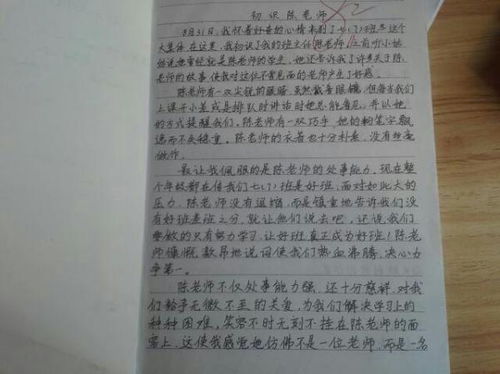 初识陈老师
8月31日，我怀着好奇的心情来到了七(7)班这个
大集体，在这里，我初识了我的班主任陈老师，
她说她曾经就是陈老师的学生，她还告诉我了许多关于陈
老师的故事，使我对这位不曾见面的老师产生了好感。
陈老师有一双尖锐的眼睛，虽然戴着眼镜，但每当我们
上课开小差或是排队时讲话时她总能看见，并以她
的方式提醒我们，陈老师有一双巧手，她的粉笔字飘
逸而不失稳重。陈老师的衣着也十分朴素，没有丝毫
做作。
最让我佩服的是陈老师的处事能力，现在整
个年级都在传我们七(7)班是好班，面对如此大的
压力，陈老师没有逃避，而是镇重地告诉我们没
有好班差班之分，就让他们说去吧，还说我们
要做的只有努力学习，让好班真正成为好班！陈老
师慷慨激昂地说词使我们热血沸腾，决心力
争第一。
陈老师不仅处事能力强，还十分慈祥，对我
们给予无微不至的关爱，为我们解决学习上的
种种困难，笑容不时无刻不挂在陈老师的面
容上，这使我感觉她仿佛不是一位老师，而是一名